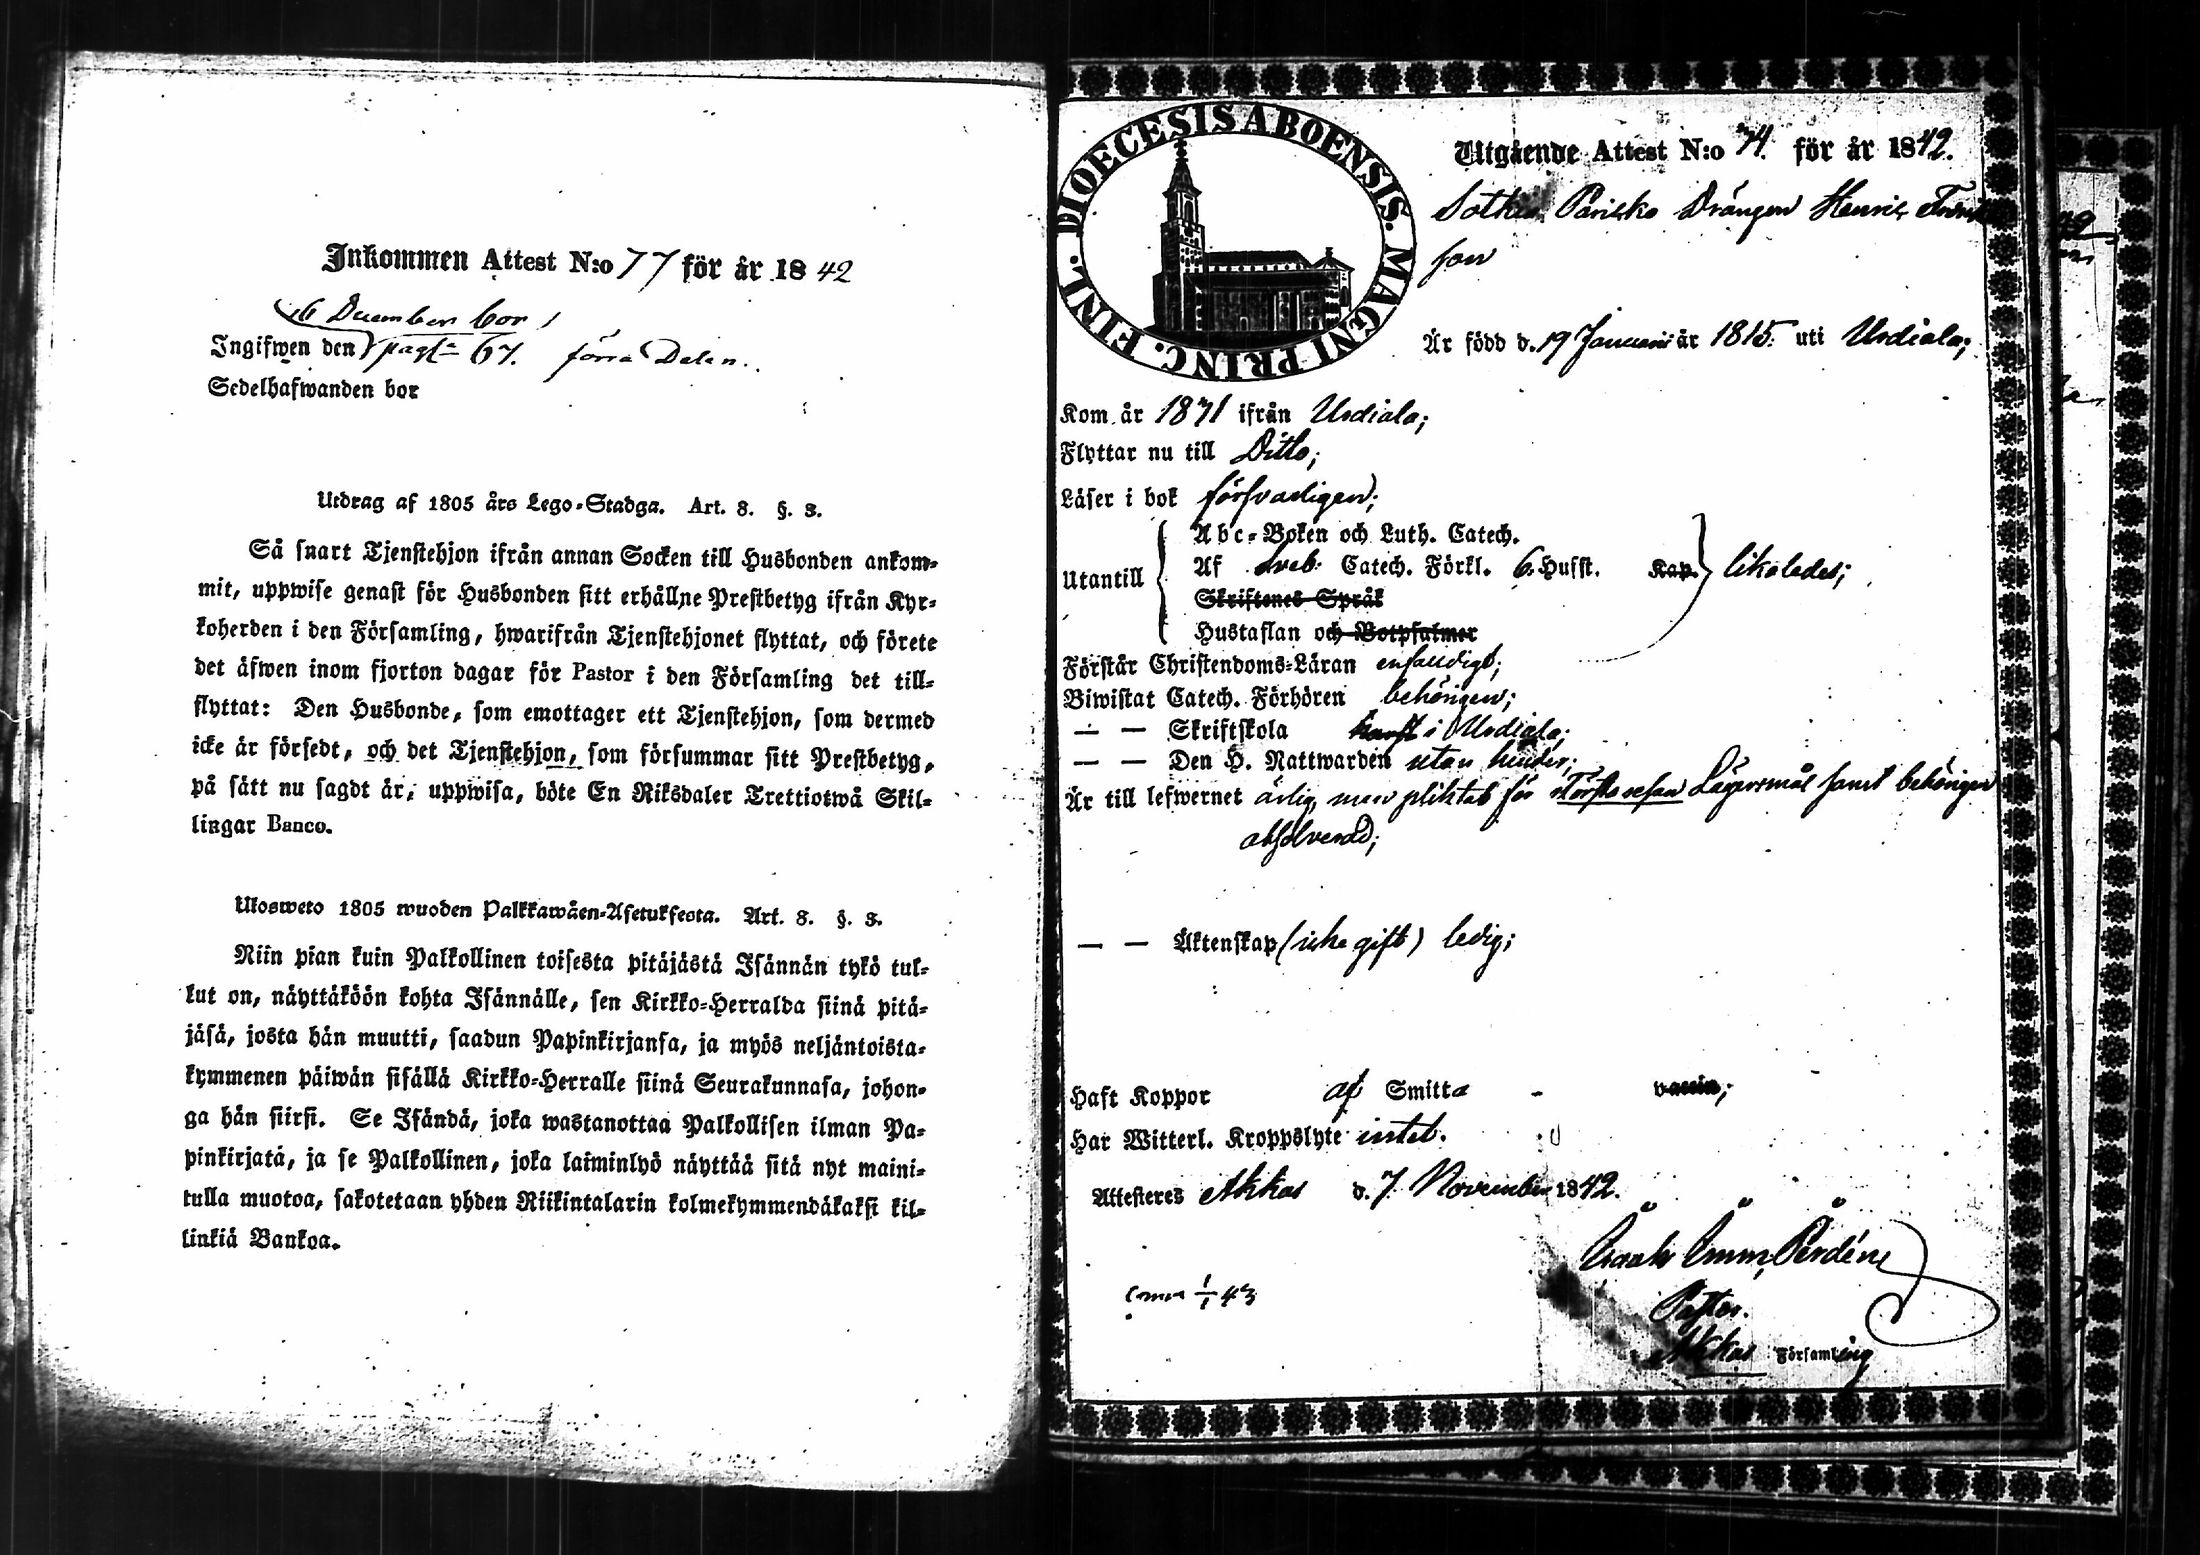 Inkommen Attest N:o 77 för år 1842
6 December bor
Ingifwen den pagi- 67. förra Delen.
Sedelhafwanden bor
Utdrag af 1805 års Lego-Stadga. Art. 8. §. 3.
Så snart Tjenstehjon ifrån annan Socken till Husbonden ankom-
mit, uppwise genast för Husbonden sitt erhållne Prestbetyg ifrån Kyr-
koherden i den Församling, hwarifrån Tjenstehjonet flyttat, och förete
det äfwen inom fjorton dagar för Pastor i den Församling det till-
flyttat: Den Husbonde, som emottager ett Tjenstehjon, som dermed
icke är försedt, och det Tjenstehjon, som försummar sitt Prestbetyg,
på sätt nu sagdt är, uppwisa, böte En Riksdaler Trettiotwå Skil-
lingar Banco.
Ulosweto 1805 wuoden Palkkawäen-Asetuksesta. Art. 8. §. 3.
Niin pian kuin Palkollinen toisesta pitäjästä Isännän tykö tul-
lut on, näyttäköön kohta Isännälle, sen Kirkko-Herralda siinä pitä-
jäsä, josta hän muutti, saadun Papinkirjansa, ja myös neljäntoista-
kymmenen päiwän sisällä Kirkko-Herralle siinä Seurakunnasa, johon-
ga hän siirsi. Se Isändä, joka wastanottaa Palkollisen ilman Pa-
pinkirjatä, ja se Palkollinen, joka laiminlyö näyttää sitä nyt maini-
tulla muotoa, sakotetaan yhden Riikintalarin kolmekymmendäkaksi kil-
linkiä Bankoa.
DIOECESIS ABOENSIS. MAGNI PRINC. FINL.
Utgående Attest N:o 74. för år 1842.
Drängen Henric
son
Är född d. 19 Januarii år 1815. uti Urdiala;
Kom år 1841 ifrån Urdiala;
Flyttar nu till Ditto;
Läser i bok försvarligen;
Abc-Boken och Luth. Catech.
Utantill Af Sveb. Catech. Förkl. 6. Husst. Kap. likaledes;
Skriftenes Språk
Hustaflan och Botpsalmer
Förstår Christendoms-Läran enfaldigt;
Biwistat Catech. Förhören behörigen;
— — Skriftskola i Urdiala;
— — Den H. Nattwarden utan hinder;
Är till lefwernet ärlig, men pliktat för första resan Lägersmål samt behörigen
absolverad;
— — Äktenskap (icke gift) ledig;
Haft Koppor af Smitta - vaccin;
Har Witterl. Kroppslyte intet.
Attesteres Akkas d. 7. November 1842.
Isaak Imm. Perdén
Pastor.
Akkas Församling
1/1 43